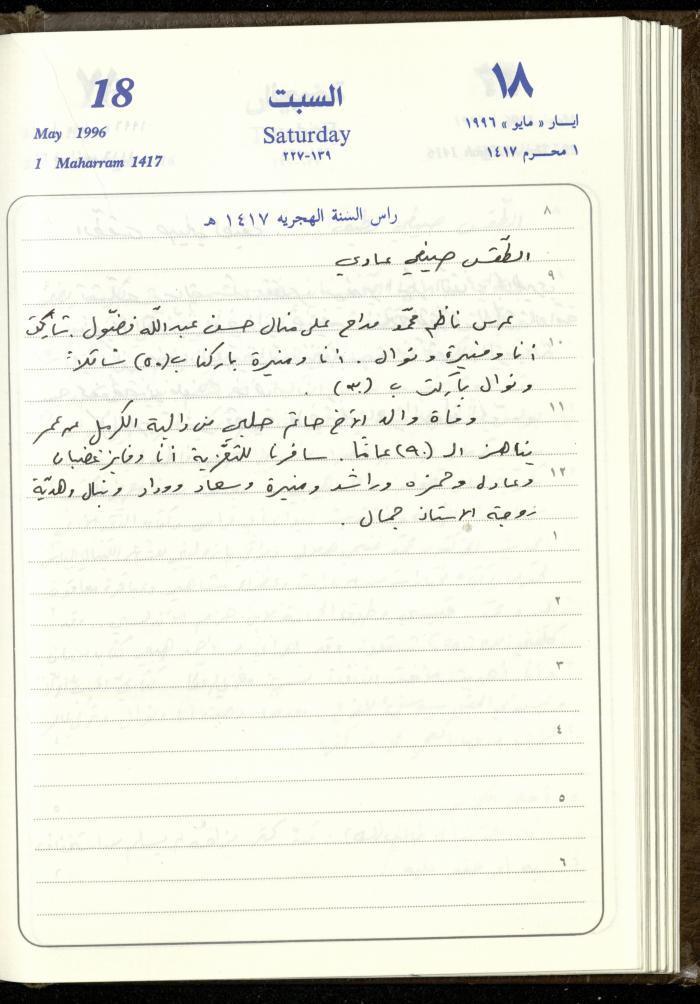 18 السبت ١٨
May 1996 Saturday ايــار « مايو » ١٩٩٦
1 Maharram 1417 ٢٢٧-١٣٩ ١ محـرم ١٤١٧
٨
راس السنة الهجريه ١٤١٧ هـ
الطّقس صيفي عادي
٩
عرس ناظم محمّد مداح على منال حسن عبدالله فضّول.
١٠
أنا ومنيرة ونوال. أنا ومنيرة باركنا ب(٥٠) شاقلاً
ونوال باركت ب (٣٠).
١١
وفاة والد الأخ حاتم حلبي من دالية الكرمل عن عمر
يناهز الـ (٩٠) عامًا. سافرنا للتعزية أنا وفايز غضبان
١٢
وعادل وحمزه وراشد ومنيرة وسعاد ووداد ونبال وهديّة
زوجة الاستاذ جمال.
١
٢
٣
٤
٥
٦